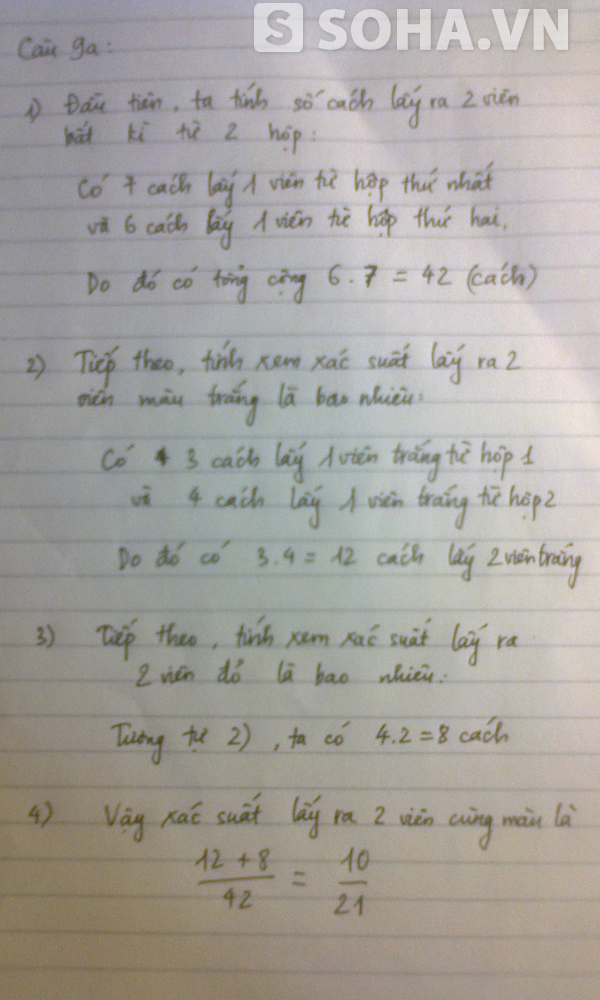 S SOHA.VN
Câu 9a:
1) Đầu tiên, ta tính số cách lấy ra 2 viên
bất kì từ 2 hộp:
Có 7 cách lấy 1 viên từ hộp thứ nhất
và 6 cách lấy 1 viên từ hộp thứ hai.
Do đó có tổng cộng 6.7 = 42 (cách)
2) Tiếp theo, tính xem xác suất lấy ra 2
viên màu trắng là bao nhiêu:
Có 3 cách lấy 1 viên trắng từ hộp 1
và 4 cách lấy 1 viên trắng từ hộp 2
Do đó có 3.4 = 12 cách lấy 2 viên trắng
3) Tiếp theo, tính xem xác suất lấy ra
2 viên đỏ là bao nhiêu:
Tương tự 2), ta có 4.2 = 8 cách
4) Vậy xác suất lấy ra 2 viên cùng màu là
12 + 8 / 42 = 10 / 21